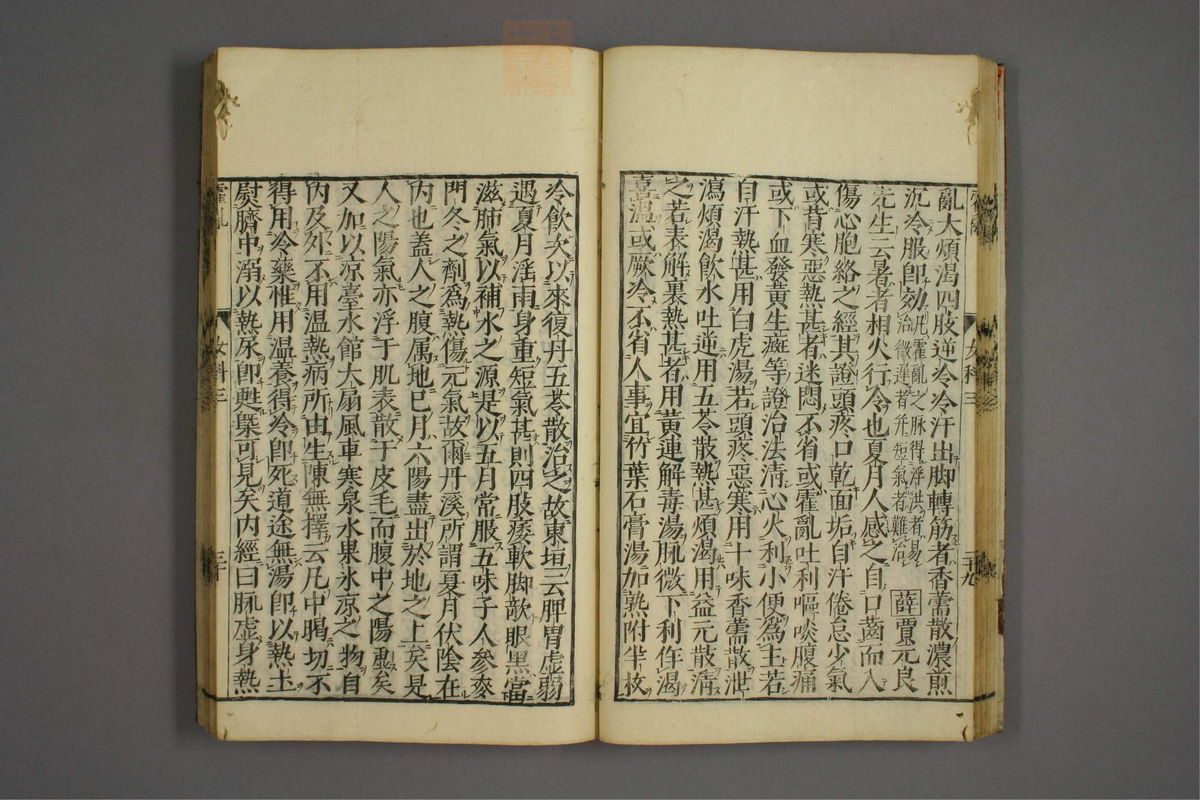 亂大煩渴四肢逆冷冷汗出脚轉筋者香薷散濃煎
沉冷服卽効凡霍亂之脉得浮洪者易
治微遲者并短氣者難治
薛賈元良
先生云暑者相火行令也夏月人感之自口齒而入
傷心胞絡之經其證頭疼口乾面垢自汗倦怠少氣
或背寒惡熱甚者迷悶不省或霍亂吐利嘔啖腹痛
或下血發黃生癍等證治法清心火利小便爲主若
自汗熱甚用白虎湯若頭疼惡寒用十味香薷散泄
瀉煩渴飲水吐逆用五苓散熱甚煩渴用益元散清
之若表解裏熱甚者用黃連解毒湯脉微下利作渴
喜溫或厥冷不省人事宜竹葉石膏湯加熟附半枚
女科三
二十九
冷飲次以來復丹五苓散治之故東垣云脾胃虛弱
遇夏月淫雨身重短氣甚則四肢痿軟脚欹眼黑當
滋肺氣以補水之源是以五月常服五味子人參麥
門冬之劑爲熱傷元氣故爾丹溪所謂夏月伏陰在
內也蓋人之腹属地巳月六陽盡出於地之上矣是
人之陽氣亦浮于肌表散于皮毛而腹中之陽虛矣
又加以凉臺水館大扇風車寒泉水果氷凉之物自
內及外不用溫熱病所由生陳無擇云凡中暍切不
得用冷藥惟用溫養得冷卽死道途無湯卽以熱土
熨臍中溺以熱尿卽甦槩可見矣內經曰脉虛身熱
霍亂
女科三
三十